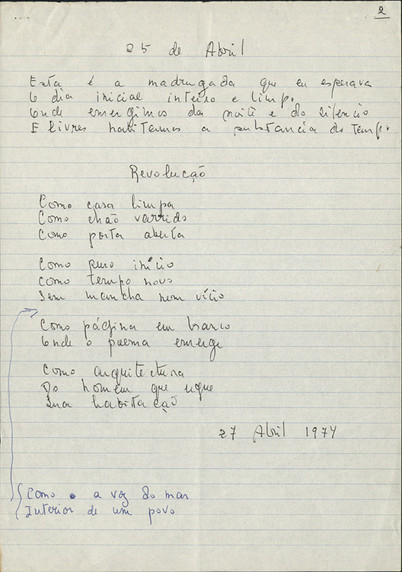 2
25 de Abril
Esta é a madrugada que eu esperava
O dia inicial inteiro e limpo
Onde emergimos da noite e do silêncio
E livres habitamos a substancia do tempo
Revolução
Como casa limpa
Como chão varrido
Como porta aberta
Como puro início
Como tempo novo
Sem mancha nem vício
Como página em branco
Onde o poema emerge
Como arquitectura
Do homem que ergue
Sua habitação
27 Abril 1974
Como a voz do mar
Interior de um povo